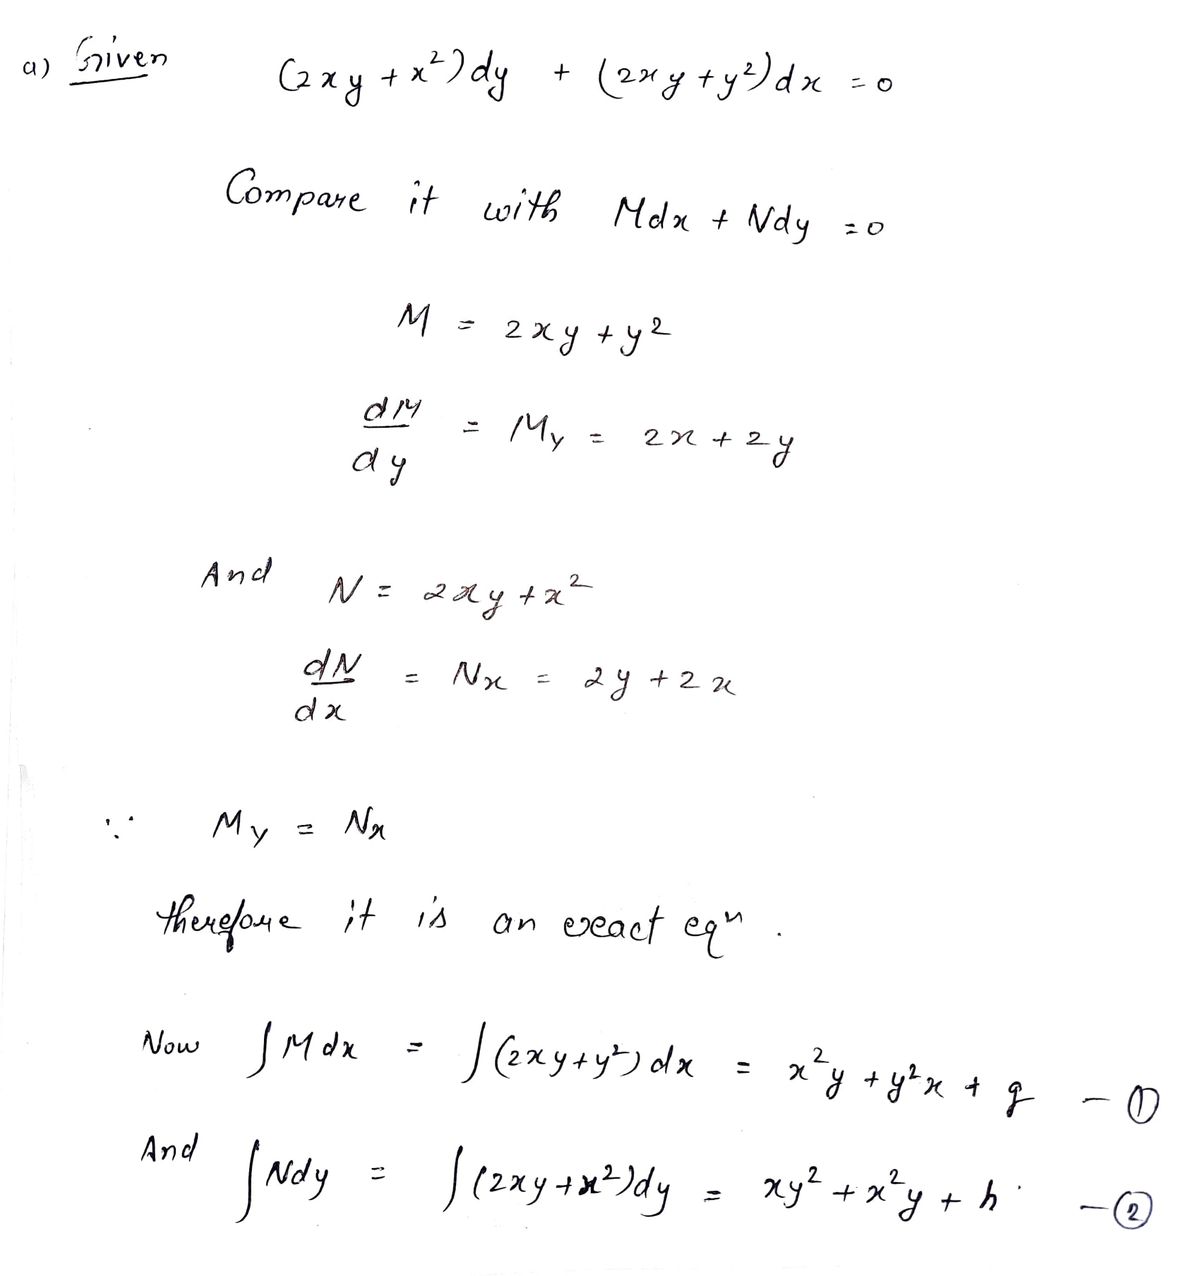 a) Given (2xy + x²)dy + (2xy + y²)dx = 0
Compare it with Mdx + Ndy = 0
M = 2xy + y²
dM/dy = My = 2x + 2y
And N = 2xy + x²
dN/dx = Nx = 2y + 2x
∵ My = Nx
therefore it is an exact eqⁿ.
Now ∫Mdx = ∫(2xy + y²)dx = x²y + y²x + g - ①
And ∫Ndy = ∫(2xy + x²)dy = xy² + x²y + h. - ②